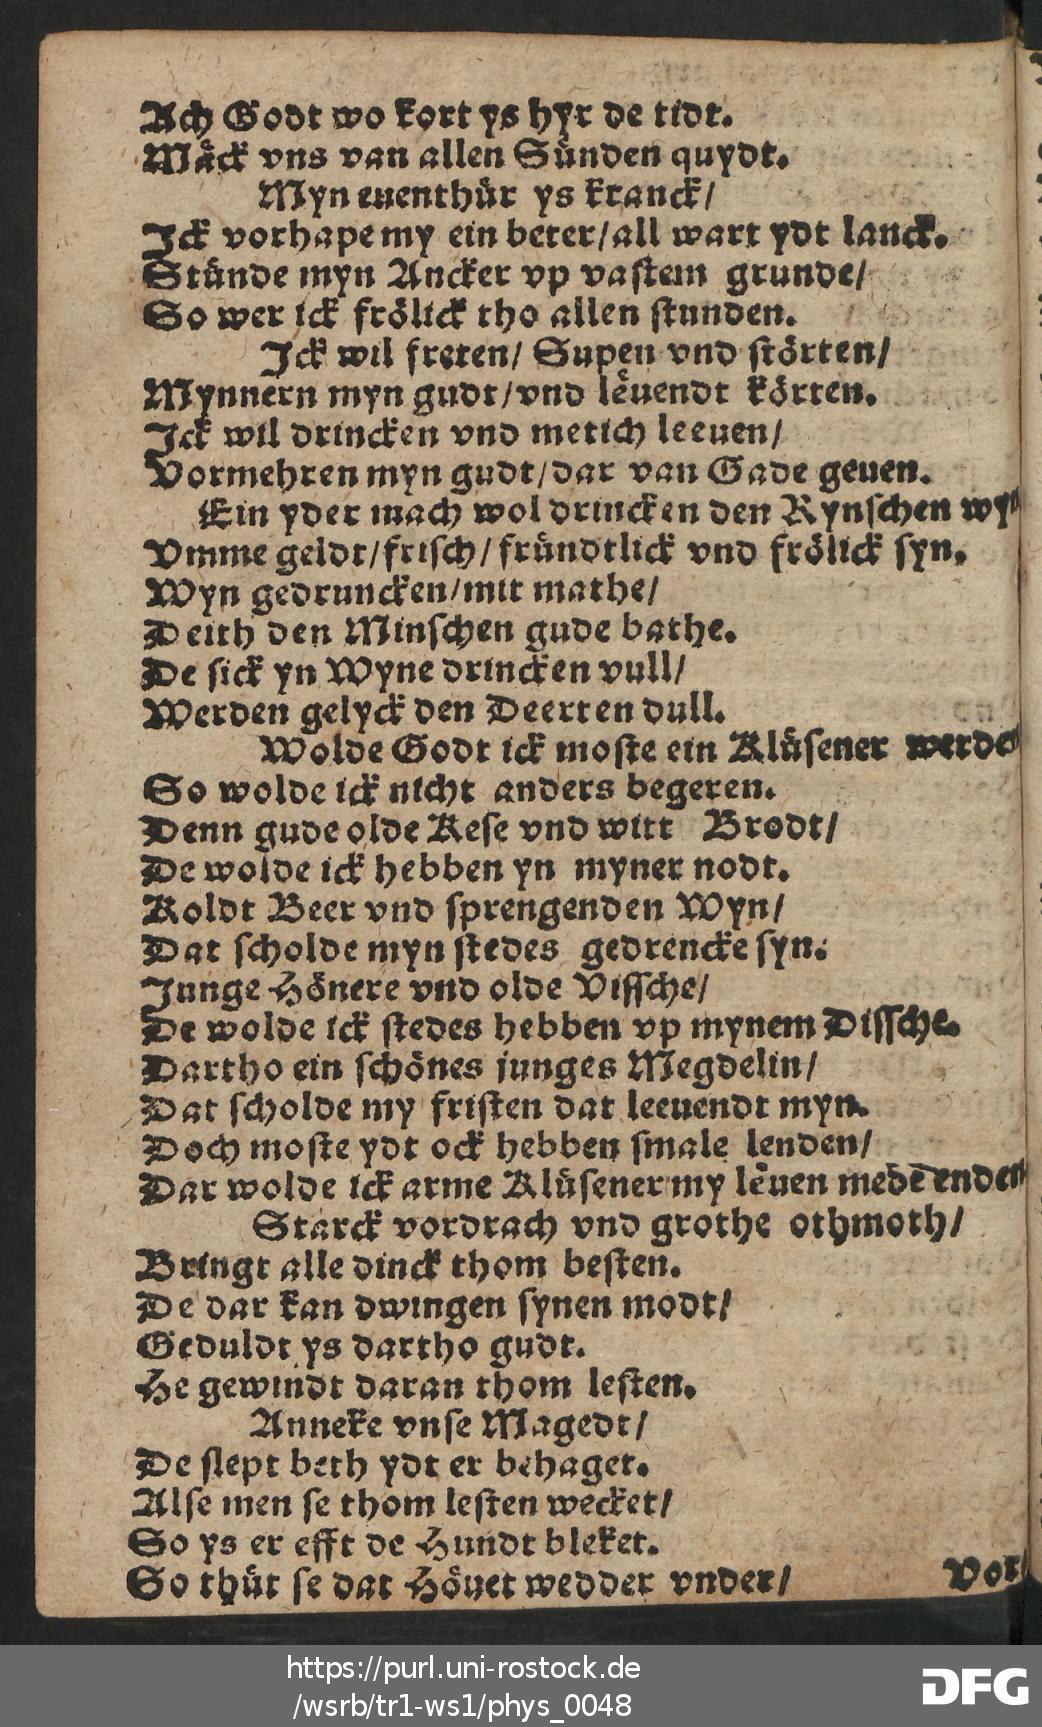 Ach Godt wo kort ys hyr de tidt.
Maͤck vns van allen Suͤnden quydt.
Myn euenthuͤr ys kranck/
Jck vorhape my ein beter/all wart ydt lanck.
Stuͤnde myn Ancker vp vastem grunde/
So wer ick froͤlick tho allen stunden.
Jck wil freten/ Supen vnd stoͤrten/
Mynnern myn gudt/vnd leͤuendt koͤrten.
Jck wil drincken vnd metich leeuen/
Vormehren myn gudt/dar van Gade geuen.
Ein yder mach wol drincken den Rynschen wyn
Vmme geldt/frisch/fruͤndtlick vnd froͤlick syn.
Wyn gedruncken/mit mathe/
Deith den Minschen gude bathe.
De sick yn Wyne drincken vull/
Werden gelyck den Deerten dull.
Wolde Godt ick moste ein Kluͤsener werde
So wolde ick nicht anders begeren.
Denn gude olde Kese vnd witt Brodt/
De wolde ick hebben yn myner nodt.
Koldt Beer vnd sprengenden Wyn/
Dat scholde myn stedes gedrencke syn.
Junge Hoͤnere vnd olde Vissche/
De wolde ick stedes hebben vp mynem Dissche.
Dartho ein schoͤnes junges Megdelin/
Dat scholde my fristen dat leeuendt myn.
Doch moste ydt ock hebben smale lenden/
Dar wolde ick arme Kluͤsener my leͤuen mede enden
Starck vordrach vnd grothe othmoth/
Bringt alle dinck thom besten.
De dar kan dwingen synen modt/
Geduldt ys dartho gudt.
He gewindt daran thom lesten.
Anneke vnse Magedt/
De slept beth ydt er behaget.
Alse men se thom lesten wecket/
So ys er efft de Hundt bleket.
So thuͤt se dat Hoͤuet wedder vnder/
Vor
https://purl.uni-rostock.de
/wsrb/tr1-ws1/phys_0048
DFG